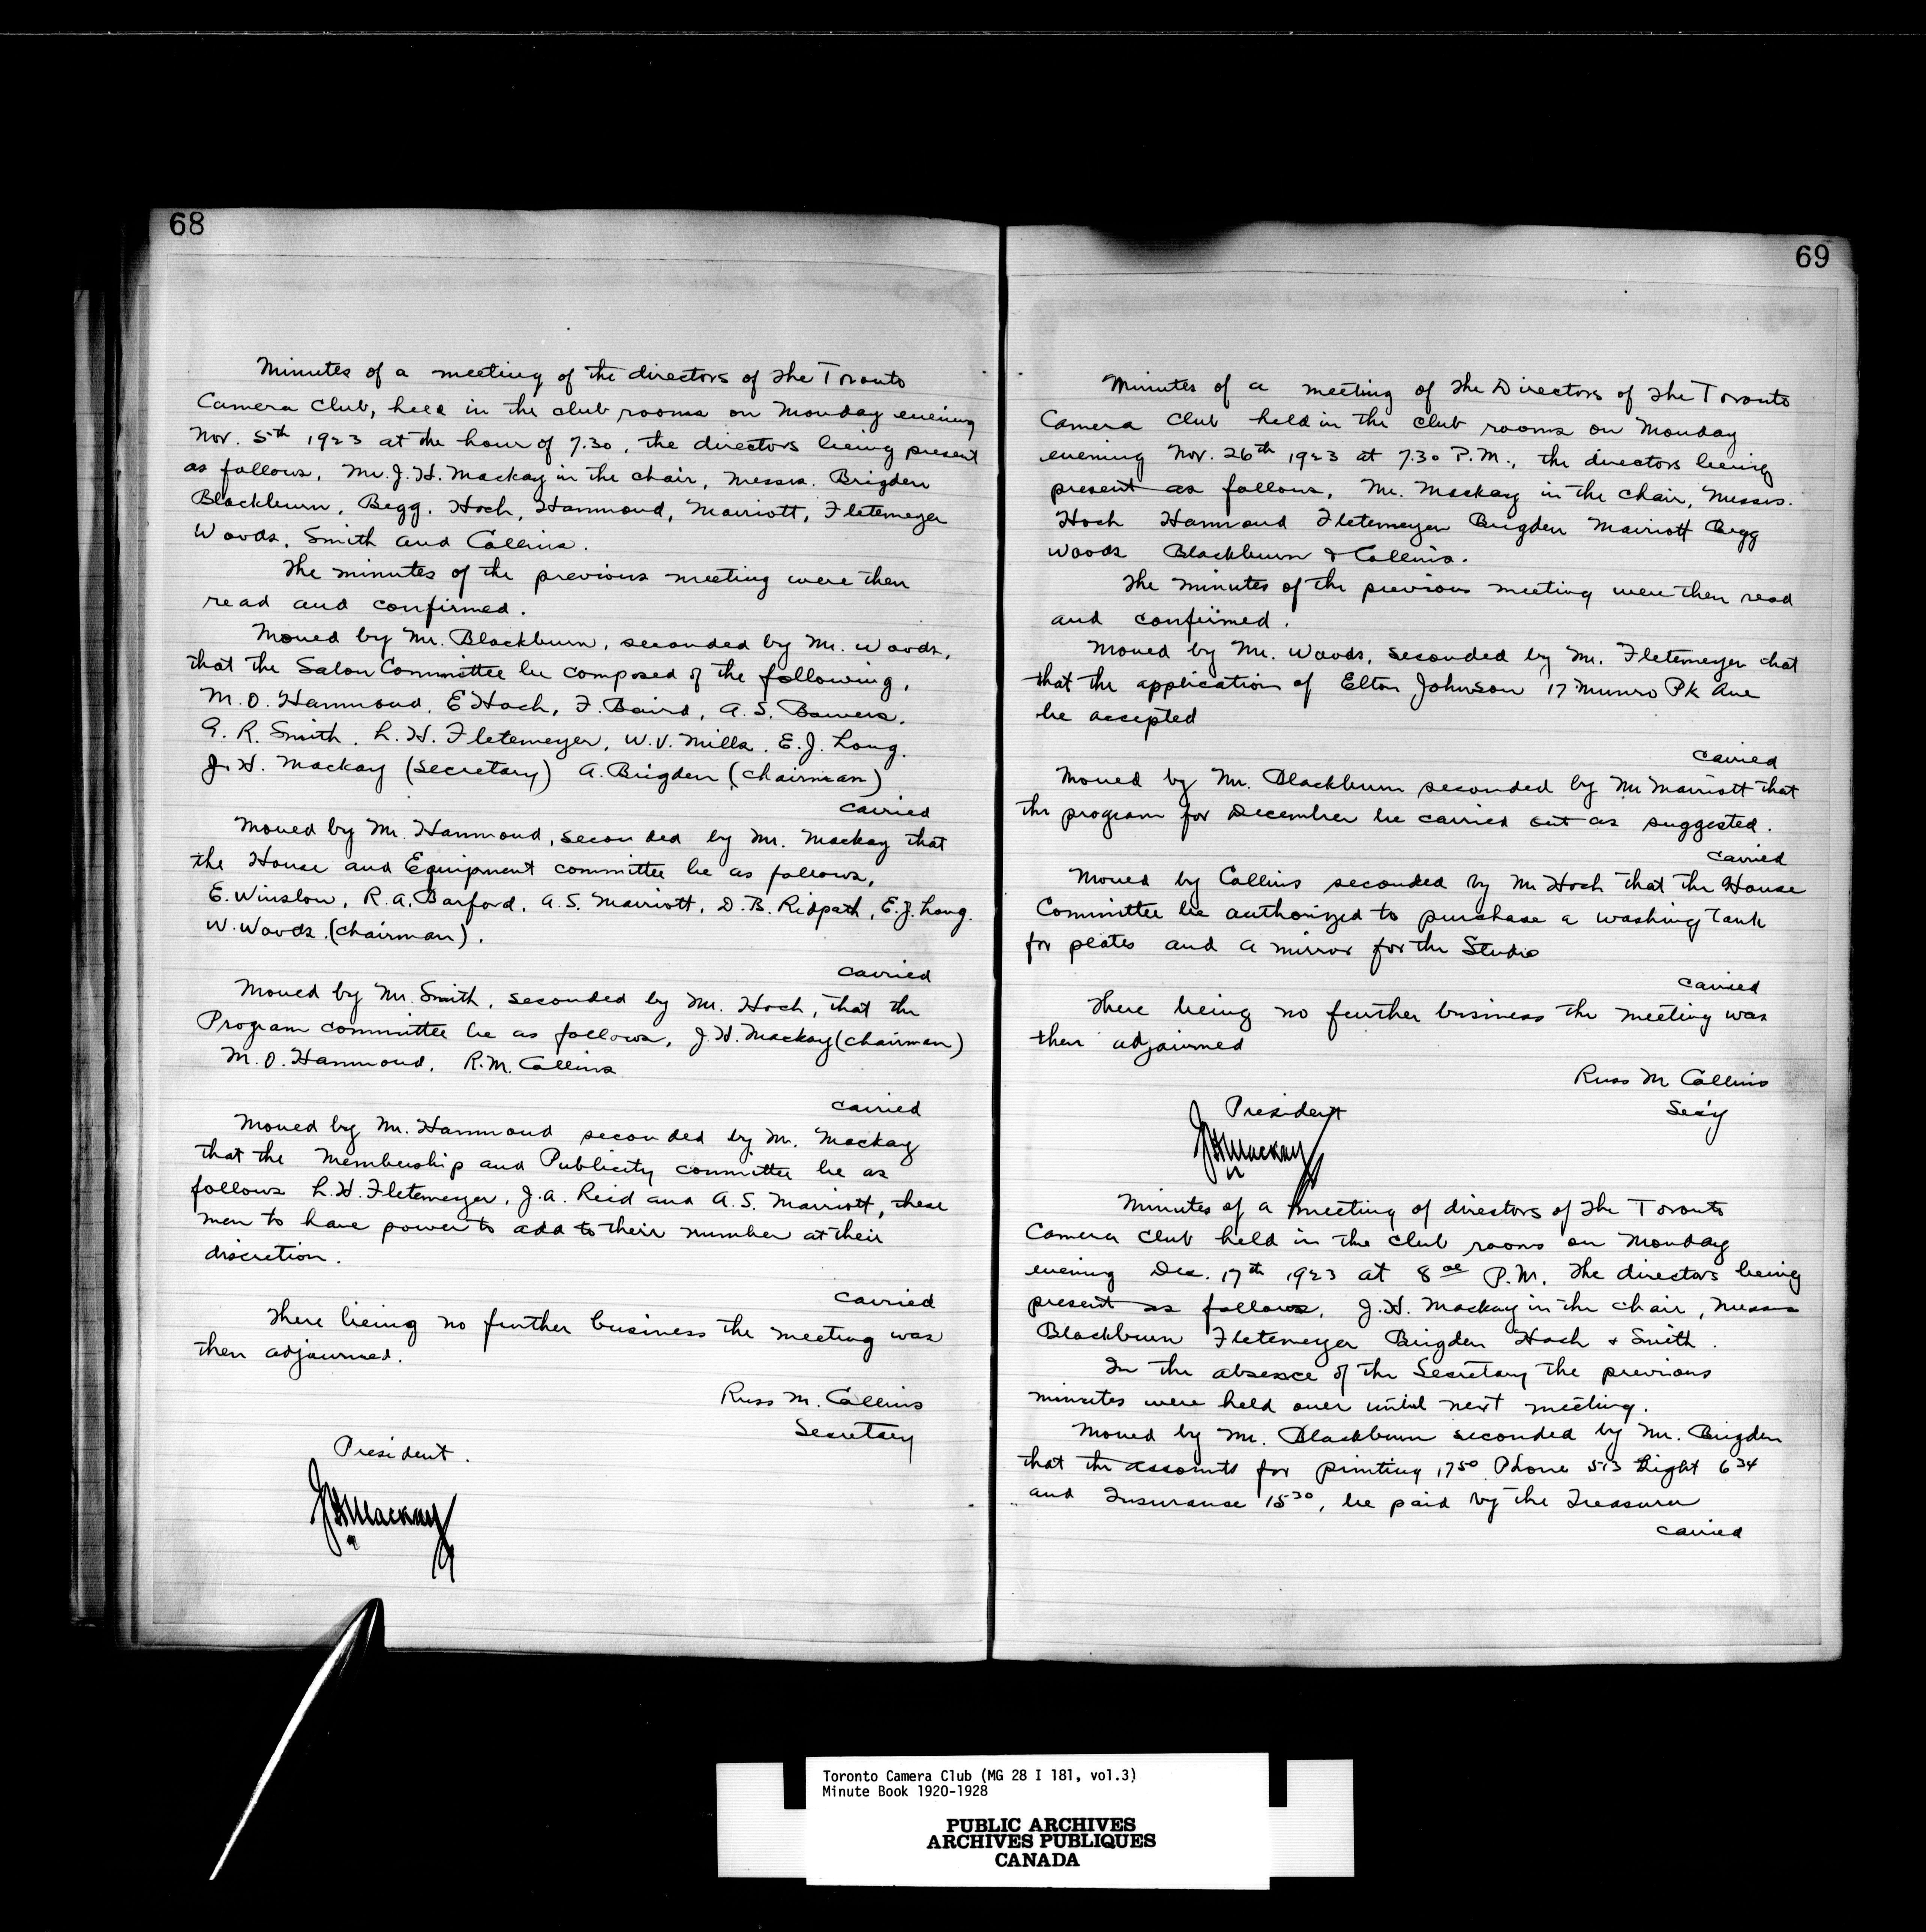 68
Minutes of a meeting of the directors of the Toronto
Camera Club, held in the club rooms on Monday evening
Nov. 5th 1923 at the hour of 7.30, the directors being present
as follows, Mr. J. H. Mackay in the chair, Messrs. Brigden
Blackburn, Begg, Hoch, Hammond, Marriott, Fletemeyer
Woods, Smith and Collins.
The minutes of the previous meeting were then
read and confirmed.
Moved by Mr. Blackburn, seconded by Mr. Woods,
that the Salon Committee be composed of the following,
M. O. Hammond, E Hoch, F. Baird, A. S. Bowers,
G. R. Smith, L. H. Fletemeyer, W. V. Mills, E. J. Long.
J. H. Mackay (Secretary) A. Brigden (Chairman)
carried
Moved by Mr. Hammond, seconded by Mr. Mackay that
the House and Equipment committee be as follows,
E. Winslow, R. A. Barford, A. S. Marriott, D. B. Ridpath, E. J. Long.
W. Woods (chairman).
carried
Moved by Mr. Smith, seconded by Mr. Hoch, that the
Program committee be as follows, J. H. Mackay (chairman)
M. O. Hammond, R. M. Collins
carried
Moved by Mr. Hammond seconded by Mr. Mackay
that the Membership and Publicity committee be as
follows L. H. Fletemeyer, J. A. Reid and A. S. Marriott, these
men to have power to add to their number at their
discretion.
carried
There being no further business the meeting was
then adjourned.
Russ M. Collins
Secretary
President.
J H Mackay
69
Minutes of a meeting of the Directors of the Toronto
Camera Club held in the club rooms on Monday
evening Nov. 26th 1923 at 7.30 P.M., the directors being
present as follows, Mr. Mackay in the chair, Messrs.
Hoch Hammond Fletemeyer Brigden Marriott Begg
Woods Blackburn & Collins.
The minutes of the previous meeting were then read
and confirmed.
Moved by Mr. Woods, seconded by Mr. Fletemeyer that
that the application of Elton Johnson 17 Munro Pk Ave
be accepted
carried
Moved by Mr. Blackburn seconded by Mr Marriott that
the program for December be carried out as suggested.
carried
Moved by Collins seconded by Mr Hoch that the House
Committee be authorized to purchase a washing tank
for plates and a mirror for the Studio
carried
There being no further business the meeting was
then adjourned
Russ M Collins
Sec'y
President
J H Mackay
Minutes of a meeting of directors of the Toronto
Camera Club held in the club rooms on Monday
evening Dec. 17th 1923 at 8 00 P.M. the directors being
present as follows, J. H. Mackay in the chair, Messrs
Blackburn Fletemeyer Brigden Hoch & Smith.
In the absence of the Secretary the previous
minutes were held over until next meeting.
Moved by Mr. Blackburn seconded by Mr. Brigden
that the accounts for printing 17 50 Phone 5 13 Light 6 34
and Insurance 15 30, be paid by the Treasurer
carried
Toronto Camera Club (MG 28 I 181, vol.3)
Minute Book 1920-1928
PUBLIC ARCHIVES
ARCHIVES PUBLIQUES
CANADA